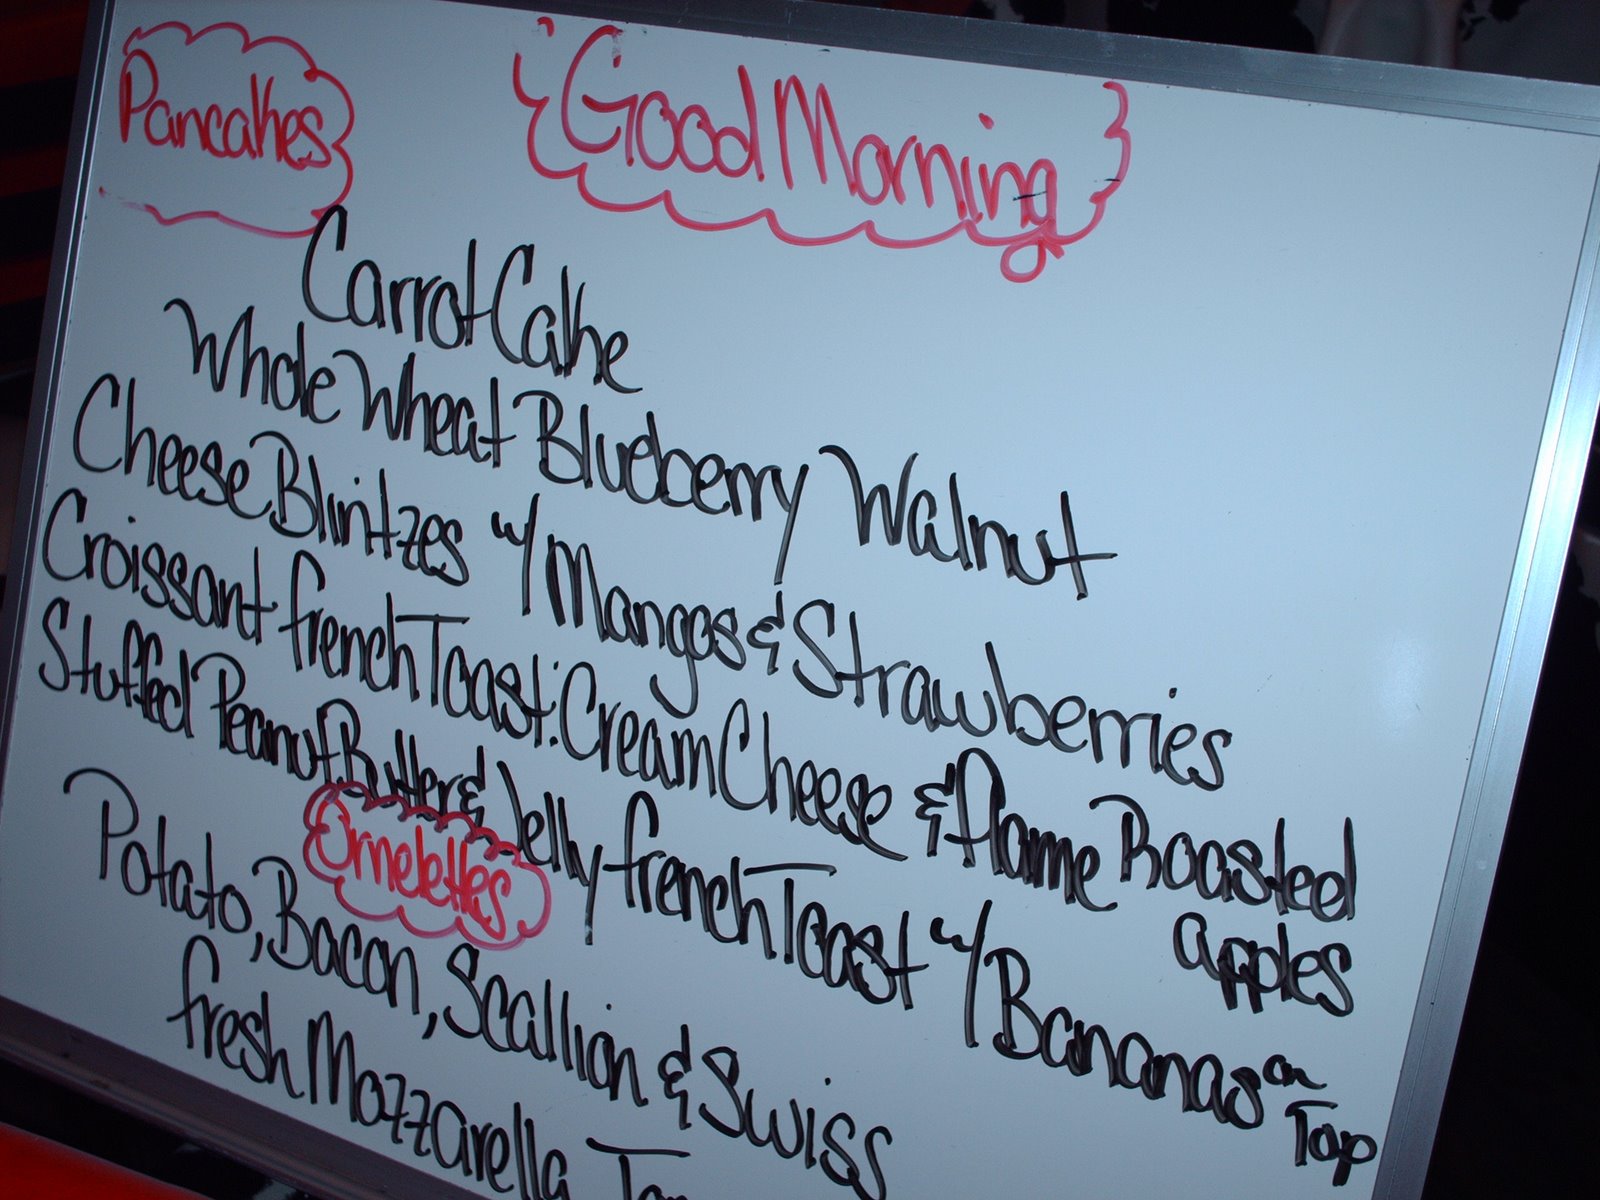 Good Morning
Pancakes
Carrot Cake
Whole Wheat Blueberry Walnut
Cheese Blintzes w/ Mangos & Strawberries
Croissant french Toast: Cream Cheese & flame Roasted
apples
Stuffed Peanut Butter & Jelly french Toast w/ Bananas on
Top
Omelettes
Potato, Bacon, Scallion & Swiss
fresh Mozzarella